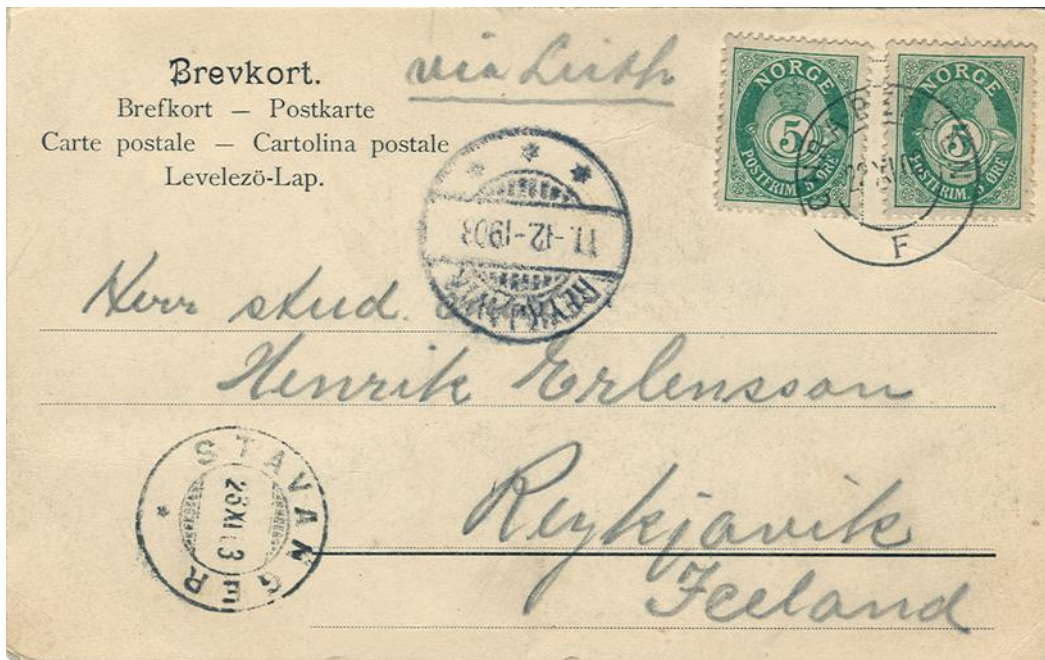 Brevkort.
Brefkort – Postkarte
Carte postale – Cartolina postale
Levelezö-Lap.
via Leith
NORGE
5
POSTFRIM 5 ØRE
NORGE
5
POSTFRIM 5 ØRE
F
11.-12-1903
REYKJAVIK
Herr stud.
Henrik Erlensson
Reykjavik
Iceland
STAVANGER